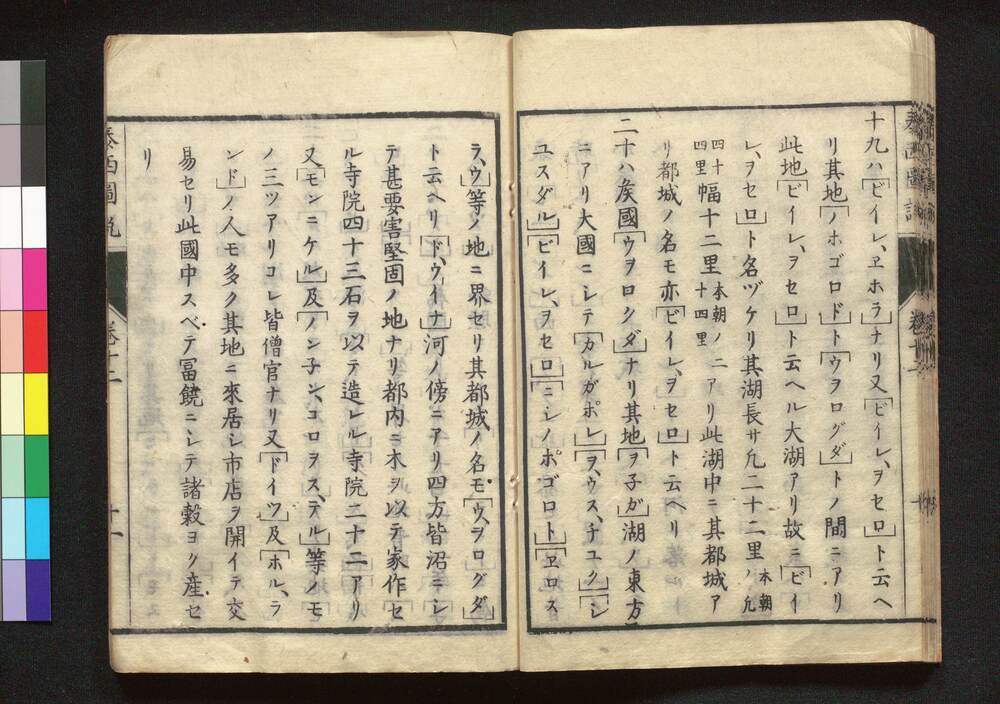 十九ハ「ビイレ、ヱホラ」ナリ又「ビイレ、ヲセロ」ト云ヘ
リ其地「ノホゴロド」ト「ウヲログダ」トノ間ニアリ
此地「ビイレ、ヲセロ」ト云ヘル大湖アリ故ニ「ビイ
レ、ヲセロ」ト名ヅケリ其湖長サ凢二十二里本朝ノ凢
四十四里幅十二里本朝ノ二十四里アリ此湖中ニ其都城ア
リ都城ノ名モ亦「ビイレ、ヲセロ」ト云ヘリ
二十ハ矦國「ウヲロクダ」ナリ其地「ヲ子ガ」湖ノ東方
ニアリ大國ニシテ「カルガポレ」「ヲ、ウス、チユク」「シ
ユスダル」「ビイレ、ヲセロ」「ニシノポゴロト」「ヱロス
ラ、ウ」等ノ地ニ界セリ其都城ノ名モ「ウヲログダ」
ト云ヘリ「ド、ウイナ」河ノ傍ニアリ四方皆沼ニシ
テ甚要害堅固ノ地ナリ都内ニ木ヲ以テ家作セ
ル寺院四十三石ヲ以テ造レル寺院二十二アリ
又「モンニケル」及「ノン子ン、コロヲス、テル」等ノモ
ノ三ツアリコレ皆僧官ナリ又「ドイツ」及「ホル、ラ
ンド」ノ人モ多ク其地ニ來居シ市店ヲ開イテ交
易セリ此國中スベテ冨饒ニシテ諸穀ヨク産セ
リ
泰西圖説
卷十二
十一